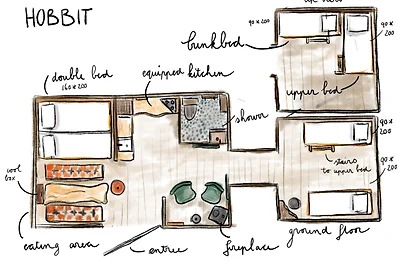 HOBBIT
90 x 200
90 x 200
bunkbed
double bed
160 x 200
equipped kitchen
upper bed
shower
90 x 200
cool box
stairs to upper bed
90 x 200
eating area
entree
fireplace
ground floor